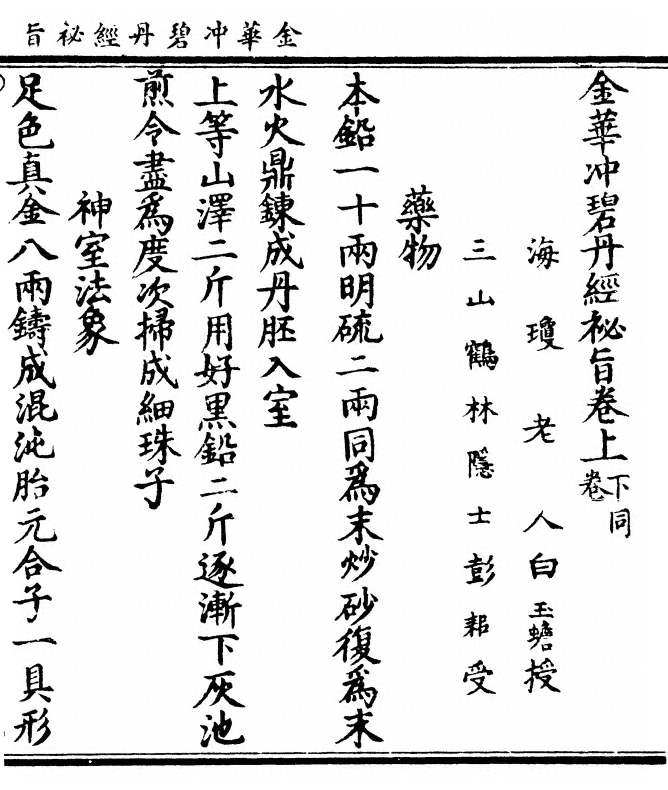 金華冲碧丹經祕旨
金華冲碧丹經祕旨卷上下卷同
海瓊老人白玉蟾授
三山鶴林隱士彭耜受
藥物
本鉛一十兩明硫二兩同爲末炒砂復爲末
水火鼎鍊成丹胚入室
上等山澤二斤用好黑鉛二斤逐漸下灰池
煎令盡爲度次掃成細珠子
神室法象
足色真金八兩鑄成混沌胎元合子一具形